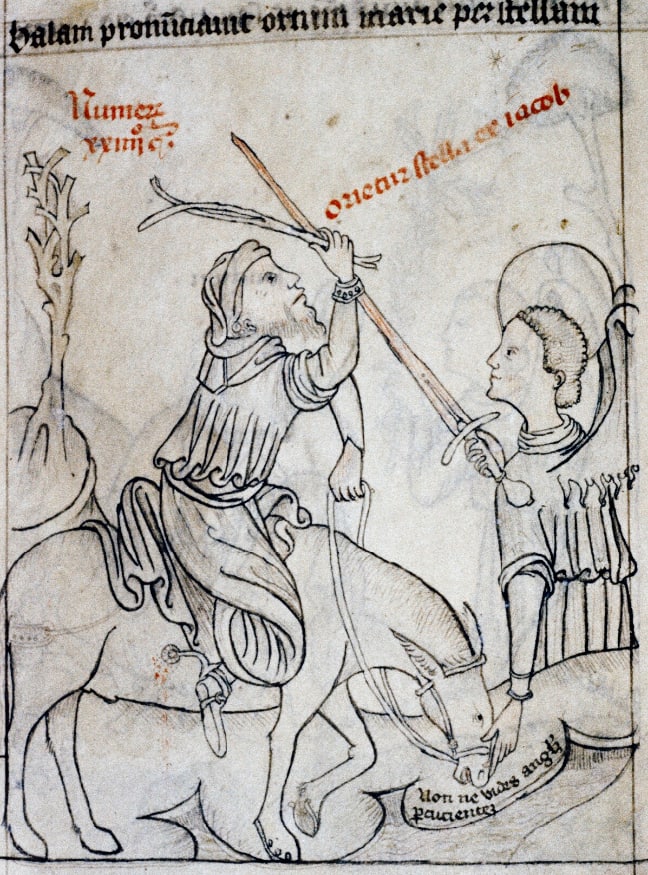 Balam pronūciauit ortum marie per stellam
Numerꝝ
xxiiijº cº.
orietur stella ex iacob
Non ne vides angl'ꝫ
ꝑcucienteꝫ